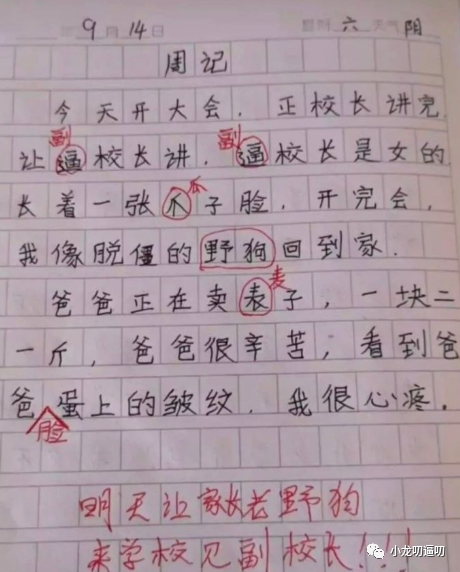 9月14日 星期六 天气阴
周记
今天开大会,正校长讲完
副 副
让逼校长讲,逼校长是女的
瓜
长着一张爪子脸,开完会,
我像脱僵的野狗回到家.
麦
爸爸正在卖表子,一块二
一斤,爸爸很辛苦,看到爸
爸蛋上的皱纹.我很心疼.
脸
明天让家长老野狗
来学校见副校长!!!
小龙叨逼叨